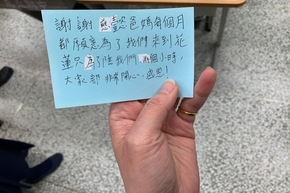 謝謝憨憨爸媽每個月
都願意為了我們來到花
蓮只為了陪我們兩個小時,
大家都非常開心、感恩!